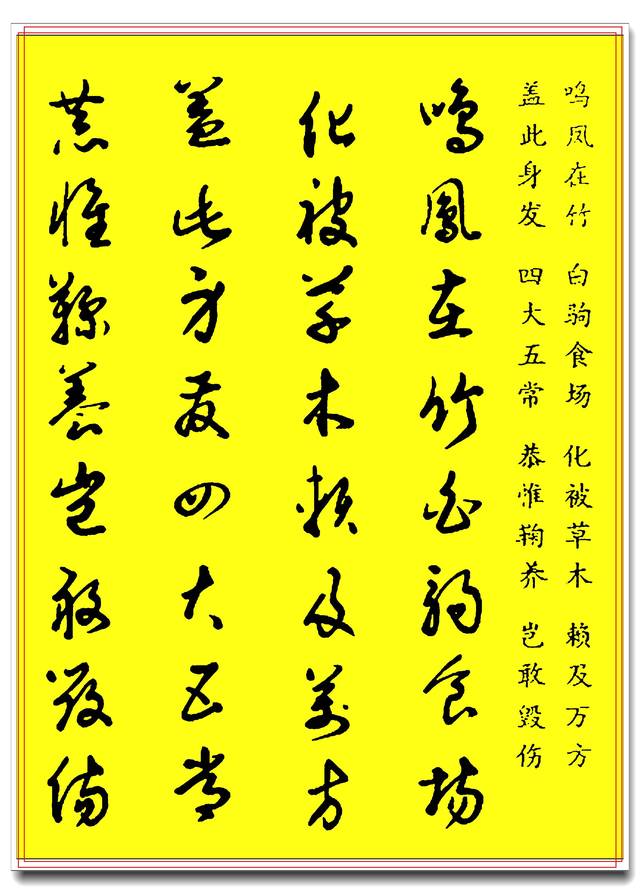 鸣凤在竹 白驹食场 化被草木 赖及万方
盖此身发 四大五常 恭惟鞠养 岂敢毁伤
鳴鳳在竹白駒食場
化被草木賴及萬方
蓋此身髮四大五常
恭惟鞠養豈敢毀傷